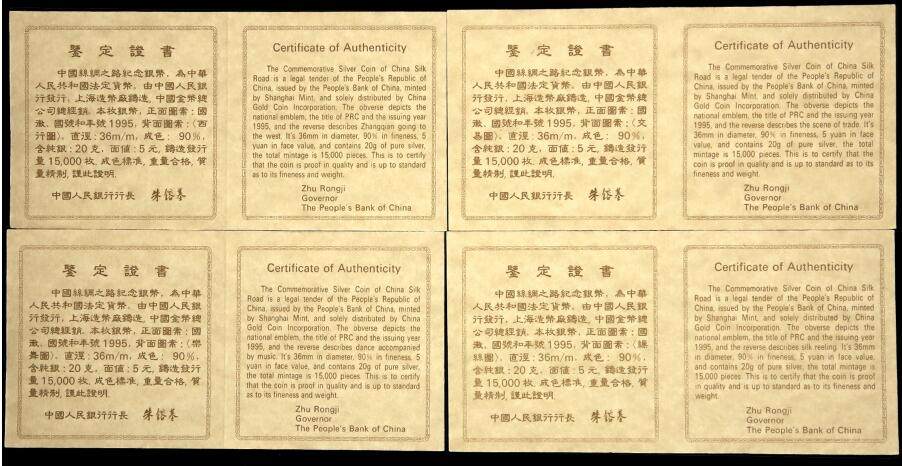 鑒定證書
中國絲綢之路紀念銀幣，為中華
人民共和國法定貨幣，由中國人民銀
行發行，上海造幣廠鑄造，中國金幣總
公司總經銷。本枚銀幣，正面圖案：國
徽、國號和年號1995，背面圖案：〈西
行圖〉，直徑：36m/m，成色：90%，
含純銀：20克，面值：5元，鑄造發行
量15,000枚，成色標準，重量合格，質
量精制，謹此證明。
中國人民銀行行長 朱鎔基
Certificate of Authenticity
The Commemorative Silver Coin of China Silk
Road is a legal tender of the People's Republic of
China, issued by the People's Bank of China, minted
by Shanghai Mint, and solely distributed by China
Gold Coin Incorporation. The obverse depicts the
national emblem, the title of PRC and the issuing year
1995, and the reverse describes Zhangqian going to
the west It's 36mm in diameter, 90% in fineness, 5
yuan in face value, and contains 20g of pure silver,
the total mintage is 15,000 pieces. This is to certify
that the coin is proof in quality and is up to standard
as to its fineness and weight.
Zhu Rongji
Governor
The People's Bank of China
鑒定證書
中國絲綢之路紀念銀幣，為中華
人民共和國法定貨幣，由中國人民銀
行發行，上海造幣廠鑄造，中國金幣總
公司總經銷。本枚銀幣，正面圖案：國
徽、國號和年號1995，背面圖案：〈交
易圖〉，直徑：36m/m，成色：90%，
含純銀：20克，面值：5元，鑄造發行
量15,000枚，成色標準，重量合格，質
量精制，謹此證明。
中國人民銀行行長 朱鎔基
Certificate of Authenticity
The Commemorative Silver Coin of China Silk
Road is a legal tender of the People's Republic of
China, issued by the People's Bank of China, minted
by Shanghai Mint, and solely distributed by China
Gold Coin Incorporation. The obverse depicts the
national emblem, the title of PRC and the issuing year
1995, and the reverse describes the scene of trade. It's
36mm in diameter, 90% in fineness, 5 yuan in face
value, and contains 20g of pure silver, the total
mintage is 15,000 pieces. This is to certify that the
coin is proof in quality and is up to standard as to its
fineness and weight.
Zhu Rongji
Governor
The People's Bank of China
鑒定證書
中國絲綢之路紀念銀幣，為中華
人民共和國法定貨幣，由中國人民銀
行發行，上海造幣廠鑄造，中國金幣總
公司總經銷。本枚銀幣，正面圖案：國
徽、國號和年號1995，背面圖案：〈樂
舞圖〉，直徑：36m/m，成色：90%，
含純銀：20克，面值：5元，鑄造發行
量15,000枚，成色標準，重量合格，質
量精制，謹此證明。
中國人民銀行行長 朱鎔基
Certificate of Authenticity
The Commemorative Silver Coin of China Silk
Road is a legal tender of the People's Republic of
China, issued by the People's Bank of China, minted
by Shanghai Mint, and solely distributed by China
Gold Coin Incorporation. The obverse depicts the
national emblem, the title of PRC and the issuing year
1995, and the reverse describes dance accompanied
by music. It's 36mm in diameter, 90% in fineness, 5
yuan in face value, and contains 20g of pure silver,
the total mintage is 15,000 pieces. This is to certify
that the coin is proof in quality and is up to standard
as to its fineness and weight.
Zhu Rongji
Governor
The People's Bank of China
鑒定證書
中國絲綢之路紀念銀幣，為中華
人民共和國法定貨幣，由中國人民銀
行發行，上海造幣廠鑄造，中國金幣總
公司總經銷。本枚銀幣，正面圖案：國
徽、國號和年號1995，背面圖案：〈繅
絲圖〉，直徑：36m/m，成色：90%，
含純銀：20克，面值：5元，鑄造發行
量15,000枚，成色標準，重量合格，質
量精制，謹此證明。
中國人民銀行行長 朱鎔基
Certificate of Authenticity
The Commemorative Silver Coin of China Silk
Road is a legal tender of the People's Republic of
China, issued by the People's Bank of China, minted
by Shanghai Mint, and solely distributed by China
Gold Coin Incorporation. The obverse depicts the
national emblem, the title of PRC and the issuing year
1995, and the reverse describes silk reeling. It's 36mm
in diameter, 90% in fineness, 5 yuan in face value,
and contains 20g of pure silver, the total mintage is
15,000 pieces. This is to certify that the coin is proof
in quality and is up to standard as to its fineness and
weight.
Zhu Rongji
Governor
The People's Bank of China